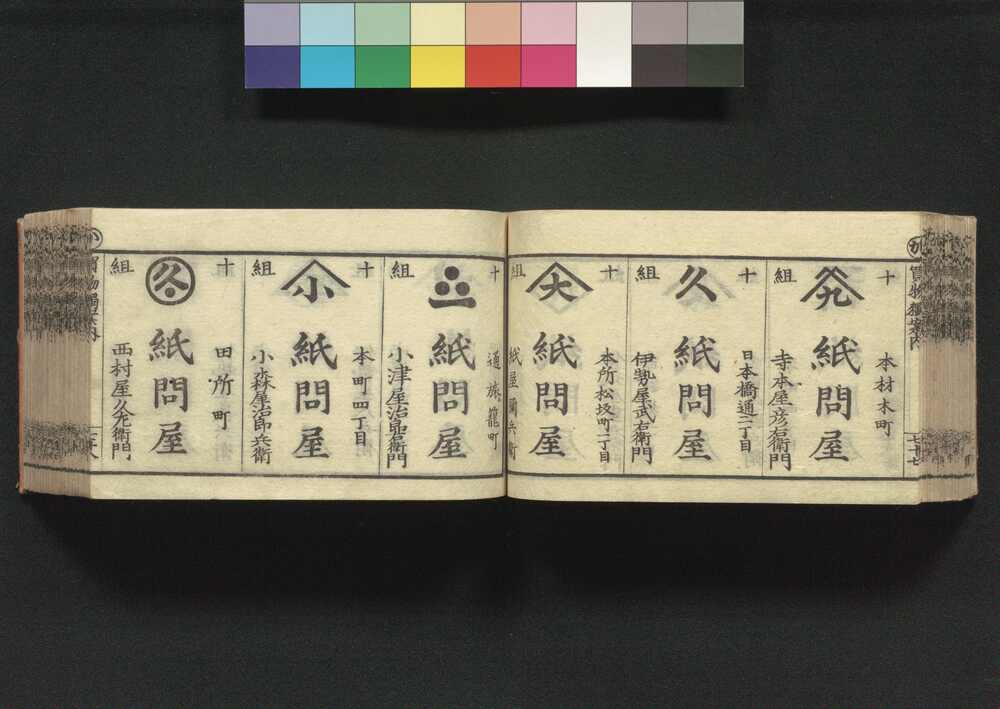 十
組
本材木町
紙問屋
寺本屋彦右衛門
十
組
久
日本橋通二丁目
紙問屋
伊勢屋武右衛門
十
組
大
本所松坂町二丁目
紙問屋
紙屋彌兵衛
十
組
通旅籠町
紙問屋
小津屋治郎右衛門
十
組
小
本町四丁目
紙問屋
小森屋治郎兵衛
十
組
久
田所町
紙問屋
西村屋久左衛門